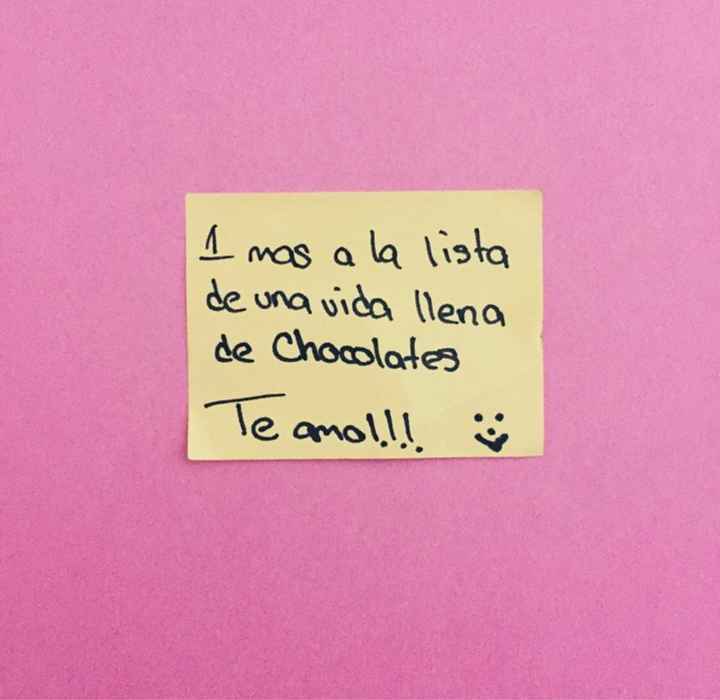 1 mas a la lista
de una vida llena
de Chocolates
Te amo!!!